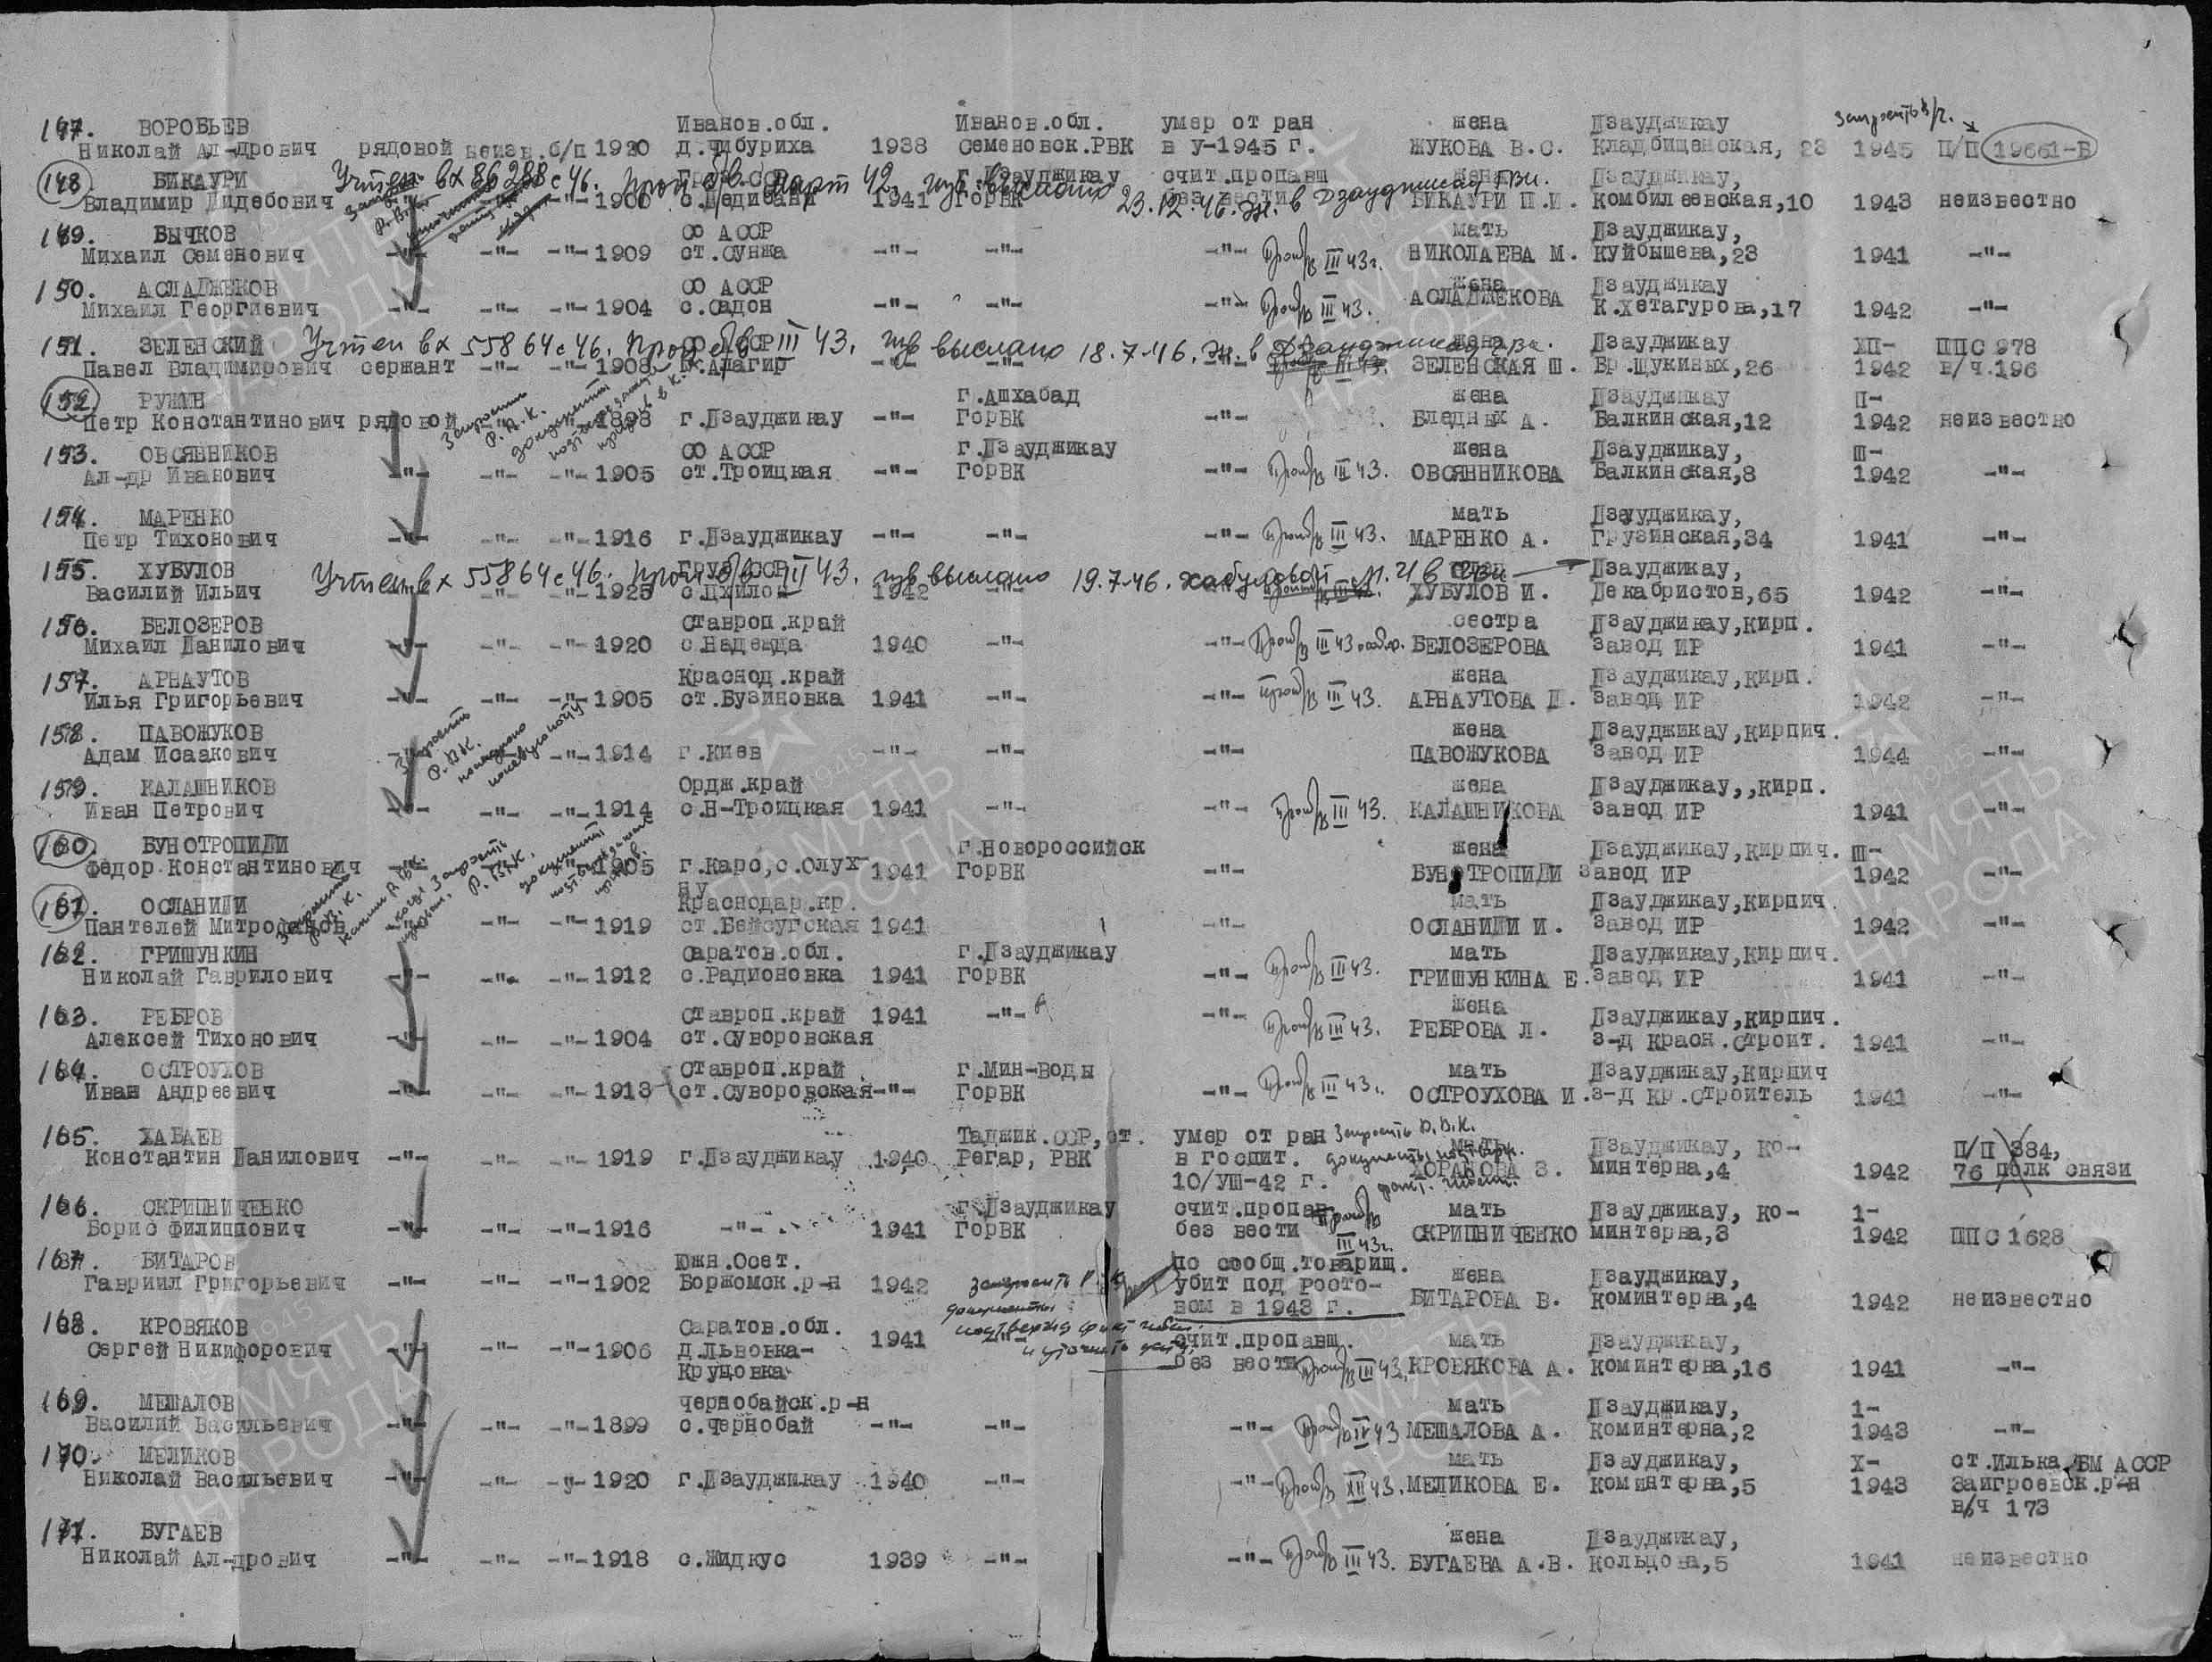 147. ВОРОБЬЕВ Иванов.обл. Иванов.обл. умер от ран жена Дзауджикау запросить в/ч.
Николай Ал-дрович рядовой неизв. б/п 1920 д.Чибуриха 1938 Семеновск.РВК в У-1945 г. ЖУКОВА В.С. Кладбищенская, 23 1945 П/П 19661-В
148. БИКАУРИ Учтен вх 86288 с 46. г.Дзауджикау счит.пропавш жена Дзауджикау,
Владимир Дидебович -"- 1900 1941 ГорВК без вести БИКАУРИ П.И. Комбилеевская,10 1943 неизвестно
23.12.46. в Дзауджикау ГВК.
149. БЫЧКОВ СО АССР мать Дзауджикау,
Михаил Семенович -"- -"- -"- 1909 ст.Сунжа -"- -"- -"- III 43г. НИКОЛАЕВА М. Куйбышева,23 1941 -"-
150. АСЛАДЖЕКОВ СО АССР жена Дзауджикау
Михаил Георгиевич -"- -"- -"- 1904 с.Садон -"- -"- -"- III 43. АСЛАДЖЕКОВА К.Хетагурова,17 1942 -"-
151. ЗЕЛЕНСКИЙ Учтен вх 55864 с 46. проп б/в III 43. изв выслано 18.7.46. ж. в Дзауджикау жена Дзауджикау ХП- ППС 978
Павел Владимирович сержант -"- -"- 1908 Алагир -"- -"- -"- III 43. ЗЕЛЕНСКАЯ Ш. Бр.Щукиных,26 1942 в/ч.196
152. РУЖИН г.Ашхабад жена Дзауджикау П-
Петр Константинович рядовой 1898 г.Дзауджикау -"- ГорВК -"- Бледных А. Балкинская,12 1942 неизвестно
153. ОВСЯННИКОВ СО АССР г.Дзауджикау жена Дзауджикау, Ш-
Ал-др Иванович -"- -"- -"- 1905 ст.Троицкая -"- ГорВК -"- III 43. ОВСЯННИКОВА Балкинская,8 1942 -"-
154. МАРЕНКО мать Дзауджикау,
Петр Тихонович -"- -"- -"- 1916 г.Дзауджикау -"- -"- -"- III 43. МАРЕНКО А. Грузинская,34 1941 -"-
155. ХУБУЛОВ Учтен вх 55864 с 46. проп б/в III 43. изв выслано 19.7.46. Дзауджикау,
Василий Ильич -"- -"- 1925 1942 -"- ХУБУЛОВ И. Декабристов,65 1942 -"-
156. БЕЛОЗЕРОВ Ставроп.край сестра Дзауджикау,кирп.
Михаил Данилович -"- -"- -"- 1920 с.Надежда 1940 -"- -"- III 43 БЕЛОЗЕРОВА завод ИР 1941 -"-
157. АРНАУТОВ Краснод.край жена Дзауджикау,кирп.
Илья Григорьевич -"- -"- -"- 1905 ст.Бузиновка 1941 -"- -"- III 43. АРНАУТОВА Д. завод ИР 1942 -"-
158. ПАВОЖУКОВ жена Дзауджикау,кирпич.
Адам Исаакович -"- 1914 г.Киев -"- -"- -"- ПАВОЖУКОВА завод ИР 1944 -"-
159. КАЛАШНИКОВ Ордж.край жена Дзауджикау,,кирп.
Иван Петрович -"- -"- -"- 1914 с.Н-Троицкая 1941 -"- -"- III 43. КАЛАШНИКОВА завод ИР 1941 -"-
160. БУНОТРОПИДИ г.Новороссийск жена Дзауджикау,кирпич. Ш-
Федор Константинович -"- 1905 г.Карс,с.Олух- 1941 ГорВК -"- БУНОТРОПИДИ завод ИР 1942 -"-
ну
161. ОСЛАНИДИ Краснодар.кр. мать Дзауджикау,кирпич.
Пантелей Митрофанов. -"- -"- 1919 ст.Бейсугская 1941 -"- ОСЛАНИДИ И. завод ИР 1942 -"-
162. ГРИШУНКИН Саратов.обл. г.Дзауджикау мать Дзауджикау,кирпич.
Николай Гаврилович -"- -"- -"- 1912 с.Радионовка 1941 ГорВК -"- III 43. ГРИШУНКИНА Е. завод ИР 1941 -"-
163. РЕБРОВ Ставроп.край 1941 -"- -"- жена Дзауджикау,кирпич.
Алексей Тихонович -"- -"- -"- 1904 ст.Суворовская III 43. РЕБРОВА Л. з-д Красн.строит. 1941 -"-
164. ОСТРОУХОВ Ставроп.край г.Мин-Воды мать Дзауджикау,кирпич
Иван Андреевич -"- -"- -"- 1913 ст.Суворовская -"- ГорВК -"- III 43г. ОСТРОУХОВА И. з-д Кр.строитель 1941 -"-
165. ХАБАЕВ Таджик.ССР,ст. умер от ран мать Дзауджикау, Ко- П/П 384,
Константин Данилович -"- -"- -"- 1919 г.Дзауджикау 1940 Регар, РВК в госпит. ХОРАНОВА З. минтерна,4 1942 76 полк связи
10/УШ-42 г.
166. СКРИПНИЧЕНКО г.Дзауджикау счит.пропав мать Дзауджикау, Ко- 1-
Борис Филиппович -"- -"- -"- 1916 -"- 1941 ГорВК без вести III 43г. СКРИПНИЧЕНКО минтерна,3 1942 ППС 1628
167. БИТАРОВ Южн.Осет. по сообщ.товарищ. жена Дзауджикау,
Гавриил Григорьевич -"- -"- -"- 1902 Боржомск.р-н 1942 убит под Росто- БИТАРОВА В. Коминтерна,4 1942 неизвестно
вом в 1943 г.
168. КРОВЯКОВ Саратов.обл. 1941 -"- счит.пропавш. мать Дзауджикау,
Сергей Никифорович -"- -"- -"- 1906 д.Львовка- без вести III 43. КРОВЯКОВА А. Коминтерна,16 1941 -"-
Круцовка
169. МЕШАЛОВ Чернобайск.р-н мать Дзауджикау, 1-
Василий Васильевич -"- -"- -"- 1899 с.Чернобай -"- -"- -"- IV 43 МЕШАЛОВА А. Коминтерна,2 1943 -"-
170. МЕЛИКОВ мать Дзауджикау, Х- ст.Илька,БМ АССР
Николай Васильевич -"- -"- -"- 1920 г.Дзауджикау 1940 -"- -"- XII 43. МЕЛИКОВА Е. Коминтерна,5 1943 Заигроевск.р-н
в/ч 173
171. БУГАЕВ жена Дзауджикау,
Николай Ал-дрович -"- -"- -"- 1918 с.Жидкус 1939 -"- -"- III 43. БУГАЕВА А.В. Кольцова,5 1941 неизвестно
ПАМЯТЬ НАРОДА